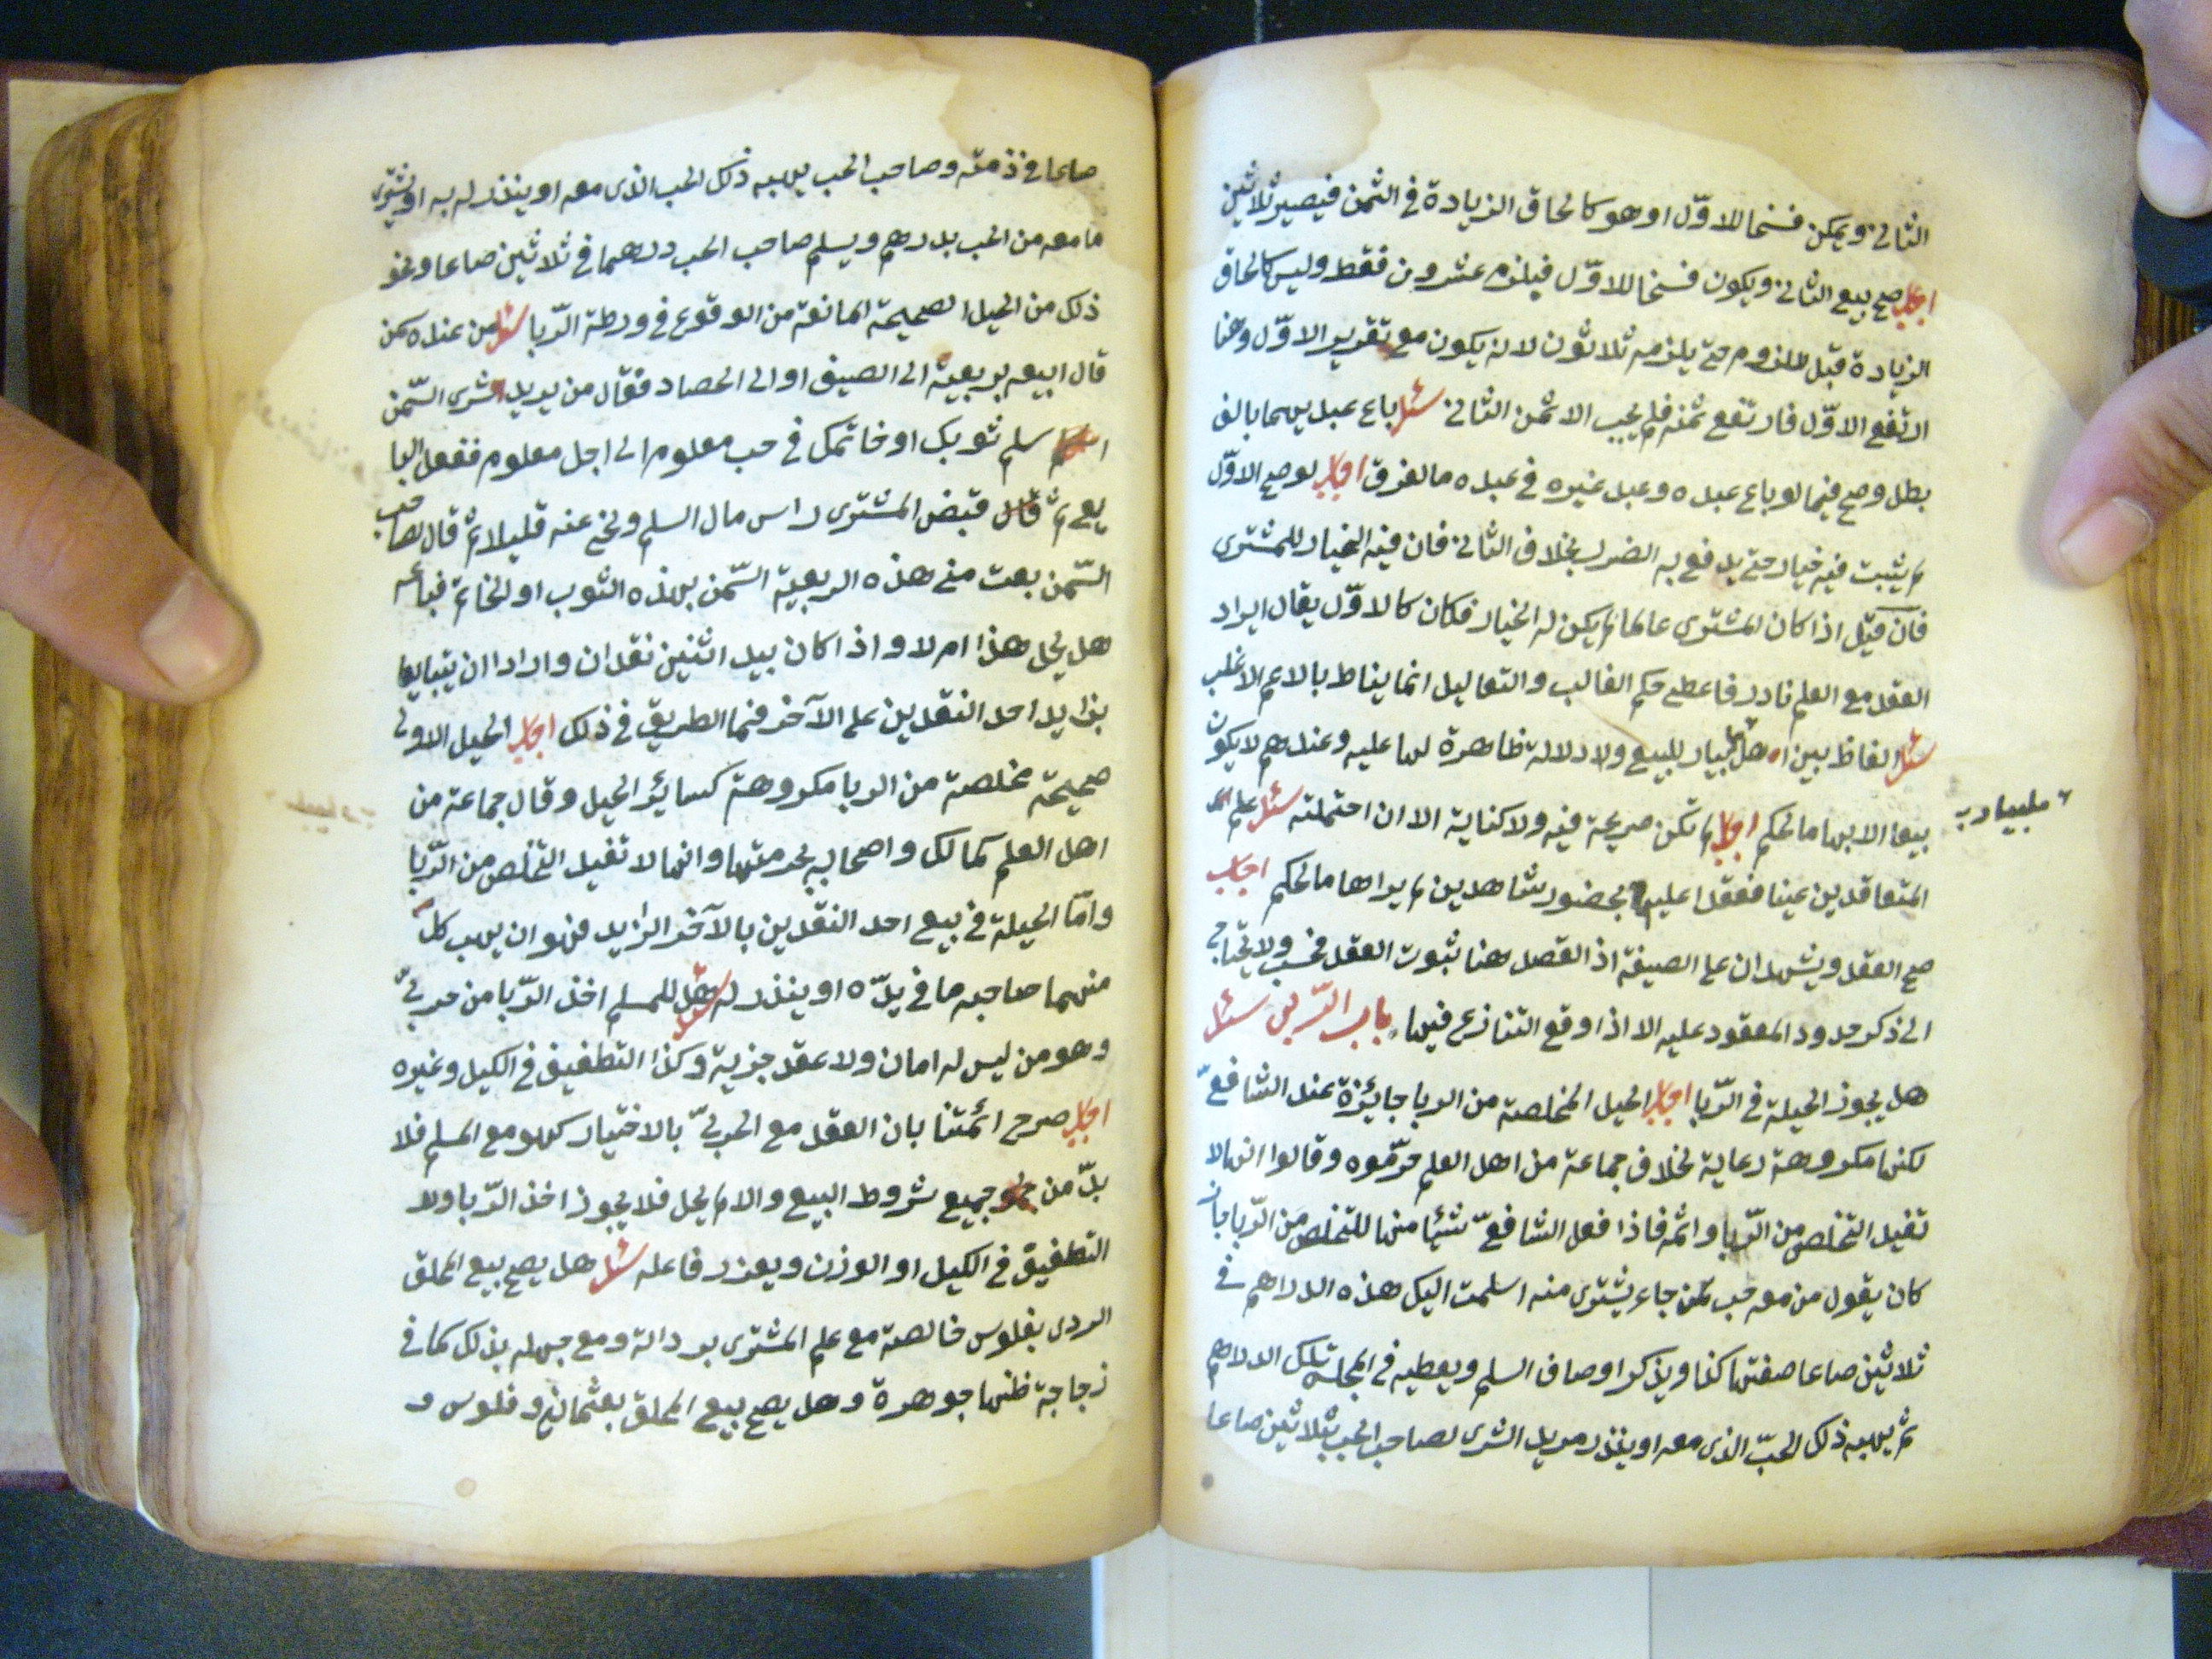 الثاني ويمكن فسخا للاوّل او هو كالحاق الزيادة في الثمن فيصير ثلاثين
اجاب صح بيع الثاني ويكون فسخا للاوّل فيلزم عشرون فقط وليس كالحاق
الزيادة قبل اللزوم حتى يلزمه ثلاثون لانه يكون مع تقرير الاوّل وهنا
ارتفع الاوّل فارتفع ثمنه فلم يجب الا ثمن الثاني سئل باع عبديهما بالف
بطل وصح فيما لو باع عبده وعبد غيره في عبده ما الفرق اجاب لو صح الاوّل
لم يثبت فيه خيار حتى يدفع به الضرر بخلاف الثاني فان فيه الخيار للمشتري
فان قيل اذا كان المشتري عالما لم يكن له الخيار فكان كالاوّل يقال ايراد
العقد مع العلم نادر فاعطى حكم الغالب والتعاليل انما يناط بالاعم الاغلب
سئل الفاظ بين اهل للبيع ولا دلالة ظاهرة لها عليه وعندهم لا يكون
بيعا الا بها ما الحكم اجاب لم تكن صريحة فيه ولا كناية الا ان احتملته سئل علم
مليبارب
المتعاقدين عينا فعقدا عليها بحضور شاهدين لم يراها ما الحكم اجاب
صح العقد ويشهدان على الصيغة اذ القصد هنا ثبوت العقد فحسب ولا يحتاج
الى ذكر حدود المعقود عليه الا اذا وقع التنازع فيها باب الرّبى سئل
هل يجوز الحيلة في الرّبا اجاب الحيل المخلصة من الربا جايزة عند الشافعيّ
لكنها مكروهة رعاية لخلاف جماعة من اهل العلم حرّموه وقالوا انها لا
تفيد التخلص من الرّبا واثمه فاذا فعل الشافعيّ شيئا منها للتخلص من الرّبا بان
كان يقول من معه حب لمن جاء يشترى منه اسلمت اليك هذه الدراهم في
ثلاثين صاعا صفتها كذا ويذكر اوصاف السلم ويعطيه في المجلس تلك الدراهم
ثم يهبه ذلك الحبّ الذى معه او ينذر مريد الشرى لصاحب الحب بثلاثين صاعا
صاعا في ذمته وصاحب الحب يهبه ذلك الحب الذى معه او ينذر له به او يشترى
ما معه من الحب بدرهم ويسلم صاحب الحب درهما في ثلاثين صاعا ونحو
ذلك من الحيل الصحيحة المانعة من الوقوع في ورطة الرّبا سئل من عنده سمن
قال ابيعه بربعية الى الصيف او الى الحصاد فقال من يريد شرى السّمن
سلم ثوبك او خاتمك في حب معلوم الى اجل معلوم ففعل البا
يع ثم قبض المشترى راس مال السلم ونحى عنه قليلا ثم قال لصاحب
السّمن بعت منى هذه الربعية السّمن بهذه الثوب او الخاتم فباعه
هل يحل هذا ام لا واذا كان بيد اثنين نقدان وارادا ان يتبايعا
بزايد احد النقدين على الآخر فما الطريق في ذلك اجاب الحيل الاولى
صحيحة مخلصة من الربا مكروهة كسائر الحيل وقال جماعة من
اهل العلم كمالك واصحابه بحرمتها وانها لا تفيد التخلص من الرّبا
وامّا الحيلة في بيع احد النقدين بالآخر الزايد فهو ان يهب كلّ
منهما صاحبه ما في يدّه او ينذر له سئل هل للمسلم اخذ الرّبا من حربيّ
وهو من ليس له امان ولا عقد جزية وكذا التطفيف في الكيل وغيره
اجاب صرح ائمتنا بان العقد مع الحربيّ بالاختيار كهو مع المسلم فلا
بدّ من جميع شروط البيع والا لم يحل فلا يجوز اخذ الرّبا ولا
التطفيف في الكيل او الوزن ويعزر فاعله سئل هل يصح بيع المحلق
الردى بفلوس خالصة مع علم المشترى برداءته ومع جهله بذلك كما في
زجاجة ظنها جوهرة وهل يصح بيع المحلق بعثمانى وفلوس و